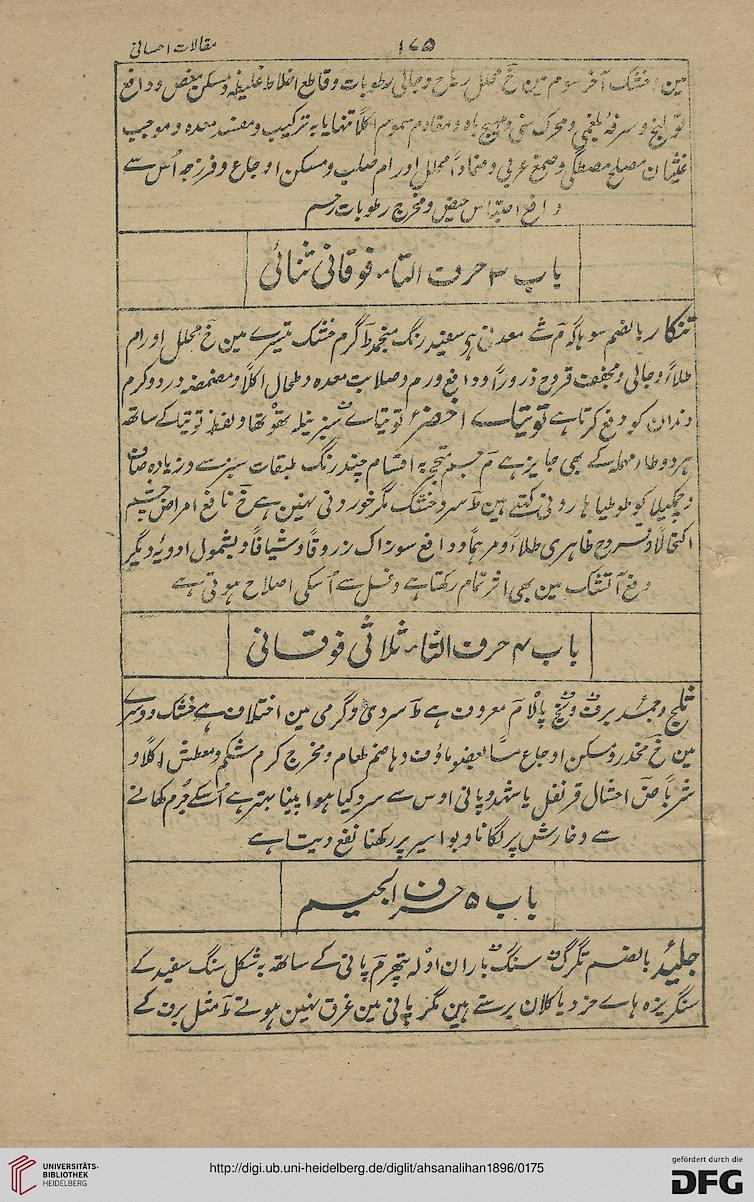 ۱۷۵ مقالات احسانی
مین خشک آخر سوم مین خ محلل ریاح و جالی رطوبات و قاطع اخلاط غلیظہ و مسکن مغص و دافع
قولنج و سرفہ بلغمی و محرک منی و مہیج باہ و مقاوم سموم اکلاً تنہا یا بہ ترکیب و مفسد معدہ و موجب
غثیان مصلح مصطگی و صمغ عربی و ضماداً محلل اورام صلب و مسکن اوجاع و فرزجہ اُس سے
دافع احتباس حیض و مخرج رطوبات رحم
باب ۳ حرف التاء فوقانی ثنائی
تنکار بالضم سوہاگہ مَ شے معدنی ہی سفید رنگ منجمد طَ گرم خشک تیسرے مین خَ محلل اورام
طلاءً و جالی و مجفف قروح ذروراً و دافع ورم و صلابت معدہ و طحال اکلاً و مضمضہ درد و کرم
دندان کو دفع کرتا ہے توتیاے اخضر توتیاے سبز نیلہ تھوتھا و لفظ توتیا کے ساتھ
ہر دو طاء مہملہ کے بھی جایز ہے مَ جسم متحجر بہ اقسام چند رنگ طبقات سبز سے و زیادہ صاف
و چمکیلا کو طوطیا ہارونی کہتے ہین طَ سرد و خشک مگر خوردنی نہین ہے خَ نافع امراض چشم
اکتحالاً و قروح ظاہری طلاءً و مرہماً و دافع سوزاک زروقاً و شیافاً و بشمول ادویہ دیگر
دفع آتشک مین بھی اثر تمام رکھتا ہے و غسل سے اُسکی اصلاح ہوتی ہے
باب ۴ حرف الثاء ثلاثی فوقانی
ثلج و جمد برف و یخ پالا مَ معروف ہے طَ سردی و گرمی مین اختلاف ہے خشک دوسرے
مین خَ مخدر و مسکن اوجاع عضو ماؤف و ہاضم طعام و مخرج کرم شکم و معطش اکلاً و
شرباً احشا قرنفل یا شہد و پانی اوس سے سرد کیا ہوا پینا بہتر ہے اُسکے جرم کھانے
سے و خارش پر لگانا و بواسیر پر رکھنا نفع دیتا ہے
باب ۵ حرف الجیم
جلید بالضم تگرگ سنگ باران اولہ پتھر مَ پانی کے ساتھ بہ شکل سنگ سفید کے
سنگریزہ ہاے خرد یا کلان برستے ہین مگر پانی مین غرق نہین ہوتے طَ مثل برف کے
UNIVERSITÄTS-
BIBLIOTHEK
HEIDELBERG
http://digi.ub.uni-heidelberg.de/diglit/ahsanalihan1896/0175
gefördert durch die
DFG